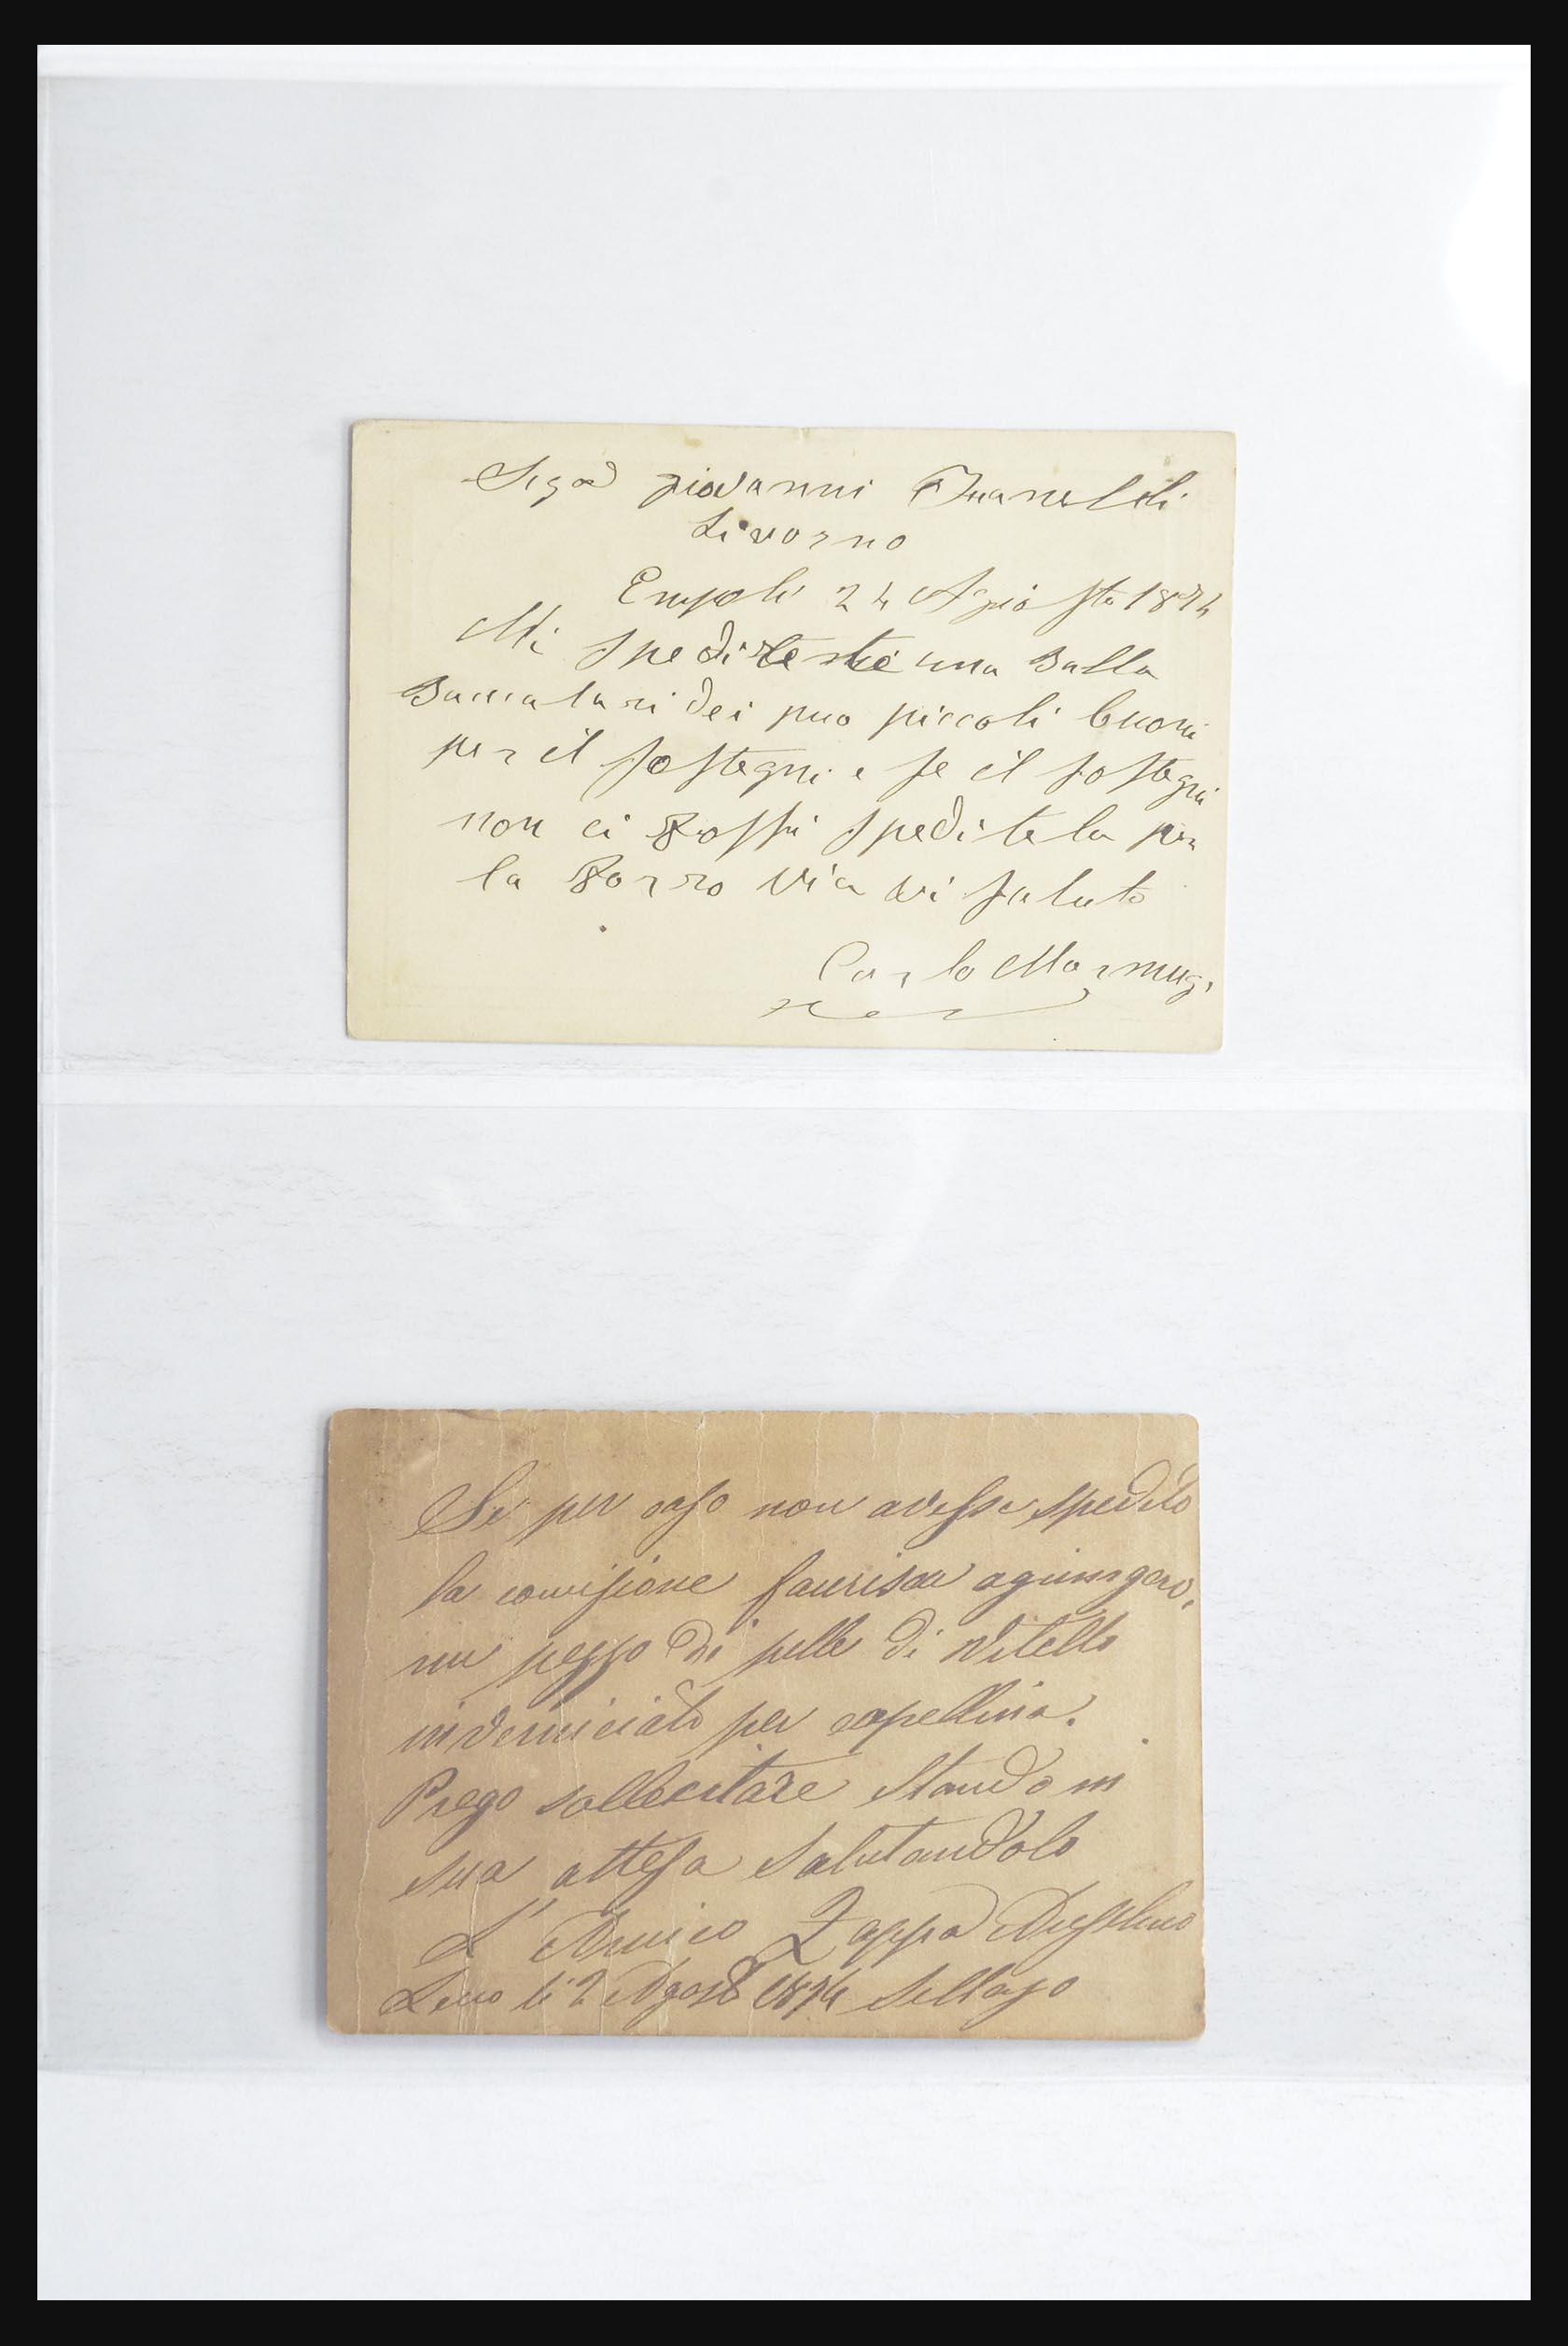 Sigor giovanni
Livorno
Empoli 24 Agosto 1874
Mi spedirete una Balla
Baccalari dei piu piccoli buoni
per il sostegni e se il sostegni
non ci fossi speditela per
la Forro via vi saluto
Carlo Marmugi
Se per caso non avesse spedito
la comisione favrisca agiungere,
un pezzo di pelle di vitello
inverniciato per capellina.
Prego sollecitare Stando in
sua attesa Salutandolo
L'Amico Zappa
li 2 Agosto 1874 Sellajo